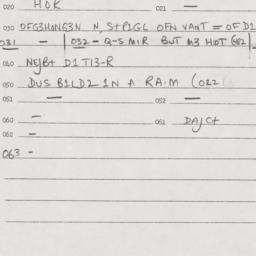 020 HOK 021 —
030 OFG3HONG3N N, S+P1GL OFN VANT = OF D1
031 — 032 - Q-S MIR BUT M3 HOT (042)
040 NEJB+ D1 T13-R
050 DUS B1LD2 1N A RA.M (022)
051 — 052 —
060 — 061 DAJC+
062 —
063 -